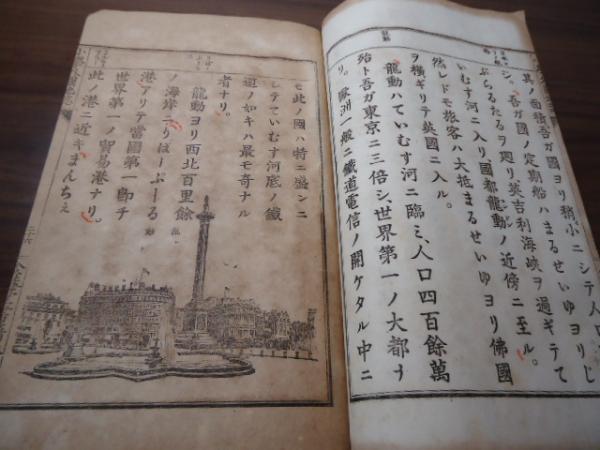 其ノ面積吾ガ國ヨリ稍小ニシテ人口
シ、吾ガ國ノ定期船ハまるせいゆヨリじ
ぶらるたるヲ廻リ英吉利海峡ヲ過ギテて
いむす河ニ入リ國都龍動ノ近傍ニ至ル。
然レドモ旅客ハ大抵まるせいゆヨリ佛國
ヲ橫ギリテ英國ニ入ル。
龍動ハていむす河ニ臨ミ、人口四百餘萬
殆ト吾ガ東京ニ三倍シ、世界第一ノ大都ナ
リ。歐洲一般ニ鐵道電信ノ開ケタル中ニ
モ此ノ國ハ特ニ盛ンニ
シテていむす河底ノ鐵
道ノ如キハ最モ奇ナル
者ナリ。
龍動ヨリ西北百里餘
ノ海岸ニりはーぷーる
港アリテ當國第一卽チ
世界第一ノ貿易港ナリ。
此ノ港ニ近キまんちぇ